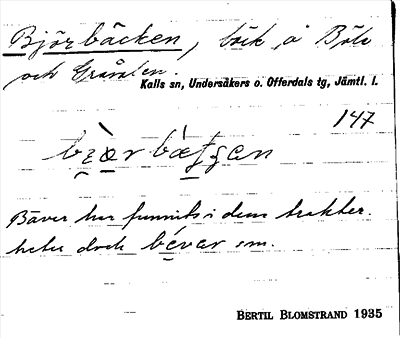 Björbäcken, bäck å Böle
och Gråsälen.
Kalls sn, Undersåkers o. Offerdals tg, Jämtl. l.
147
Bäver har funnits i dem trakter.
heter dock bévar sm.
BERTIL BLOMSTRAND 1935